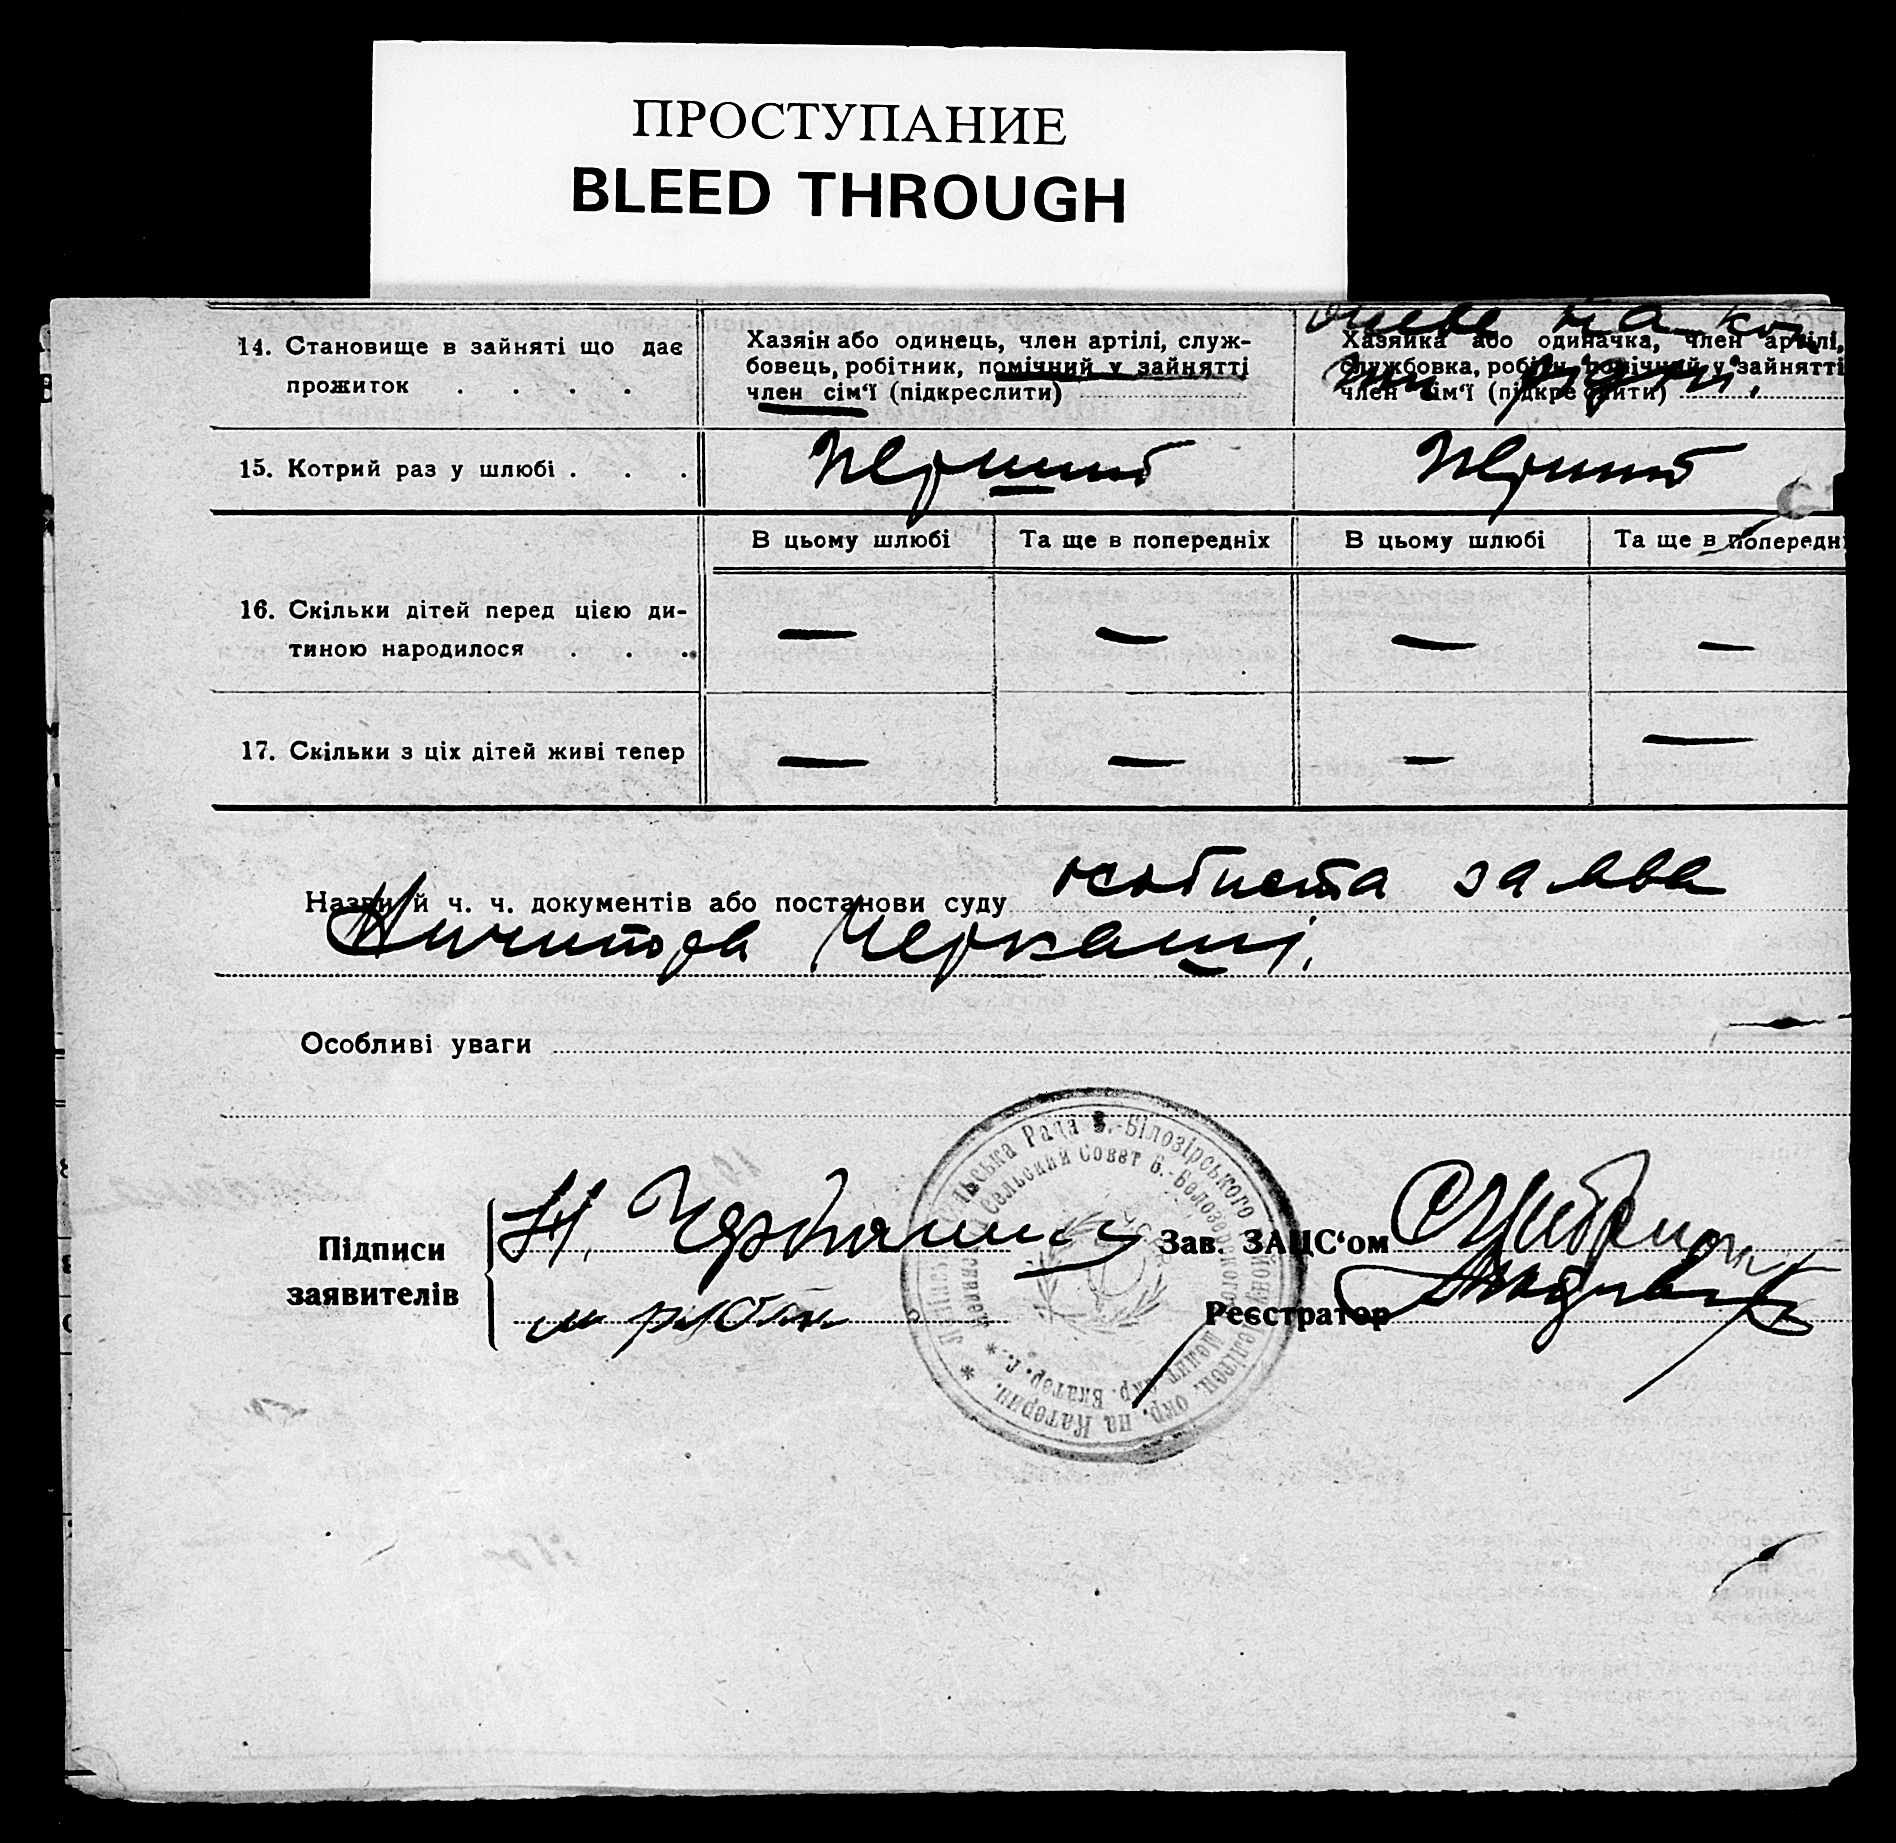 ПРОСТУПАНИЕ
BLEED THROUGH
живе на кош
ти рідні.
14. Становище в зайняті що дає
прожиток . . . .
Хазяін або одинець, член артілі, служ-
бовець, робітник, помічний у зайнятті
член сім'ї (підкреслити)
Хазяйка або одиначка, член артілі,
службовка, робітн. помічний у зайнятті
член сім'ї (підкреслити)
15. Котрий раз у шлюбі . . .
Перший
Перший
В цьому шлюбі
Та ще в попередніх
В цьому шлюбі
Та ще в попередн
16. Скільки дітей перед цією ди-
тиною народилося . . .
— — — —
17. Скільки з ціх дітей живі тепер
— — — —
Назви й ч. ч. документів або постанови суду особиста заява
Ничипора Черкаші.
Особливі уваги
Підписи
заявителів
Н. Черкаши
Зав. ЗАЦС'ом
Реєстратор
Сельский Совет Б.-Белозерского
Рада В.-Білозірського
окр. на Катерин.
Мелит. окр. Екатер. г.